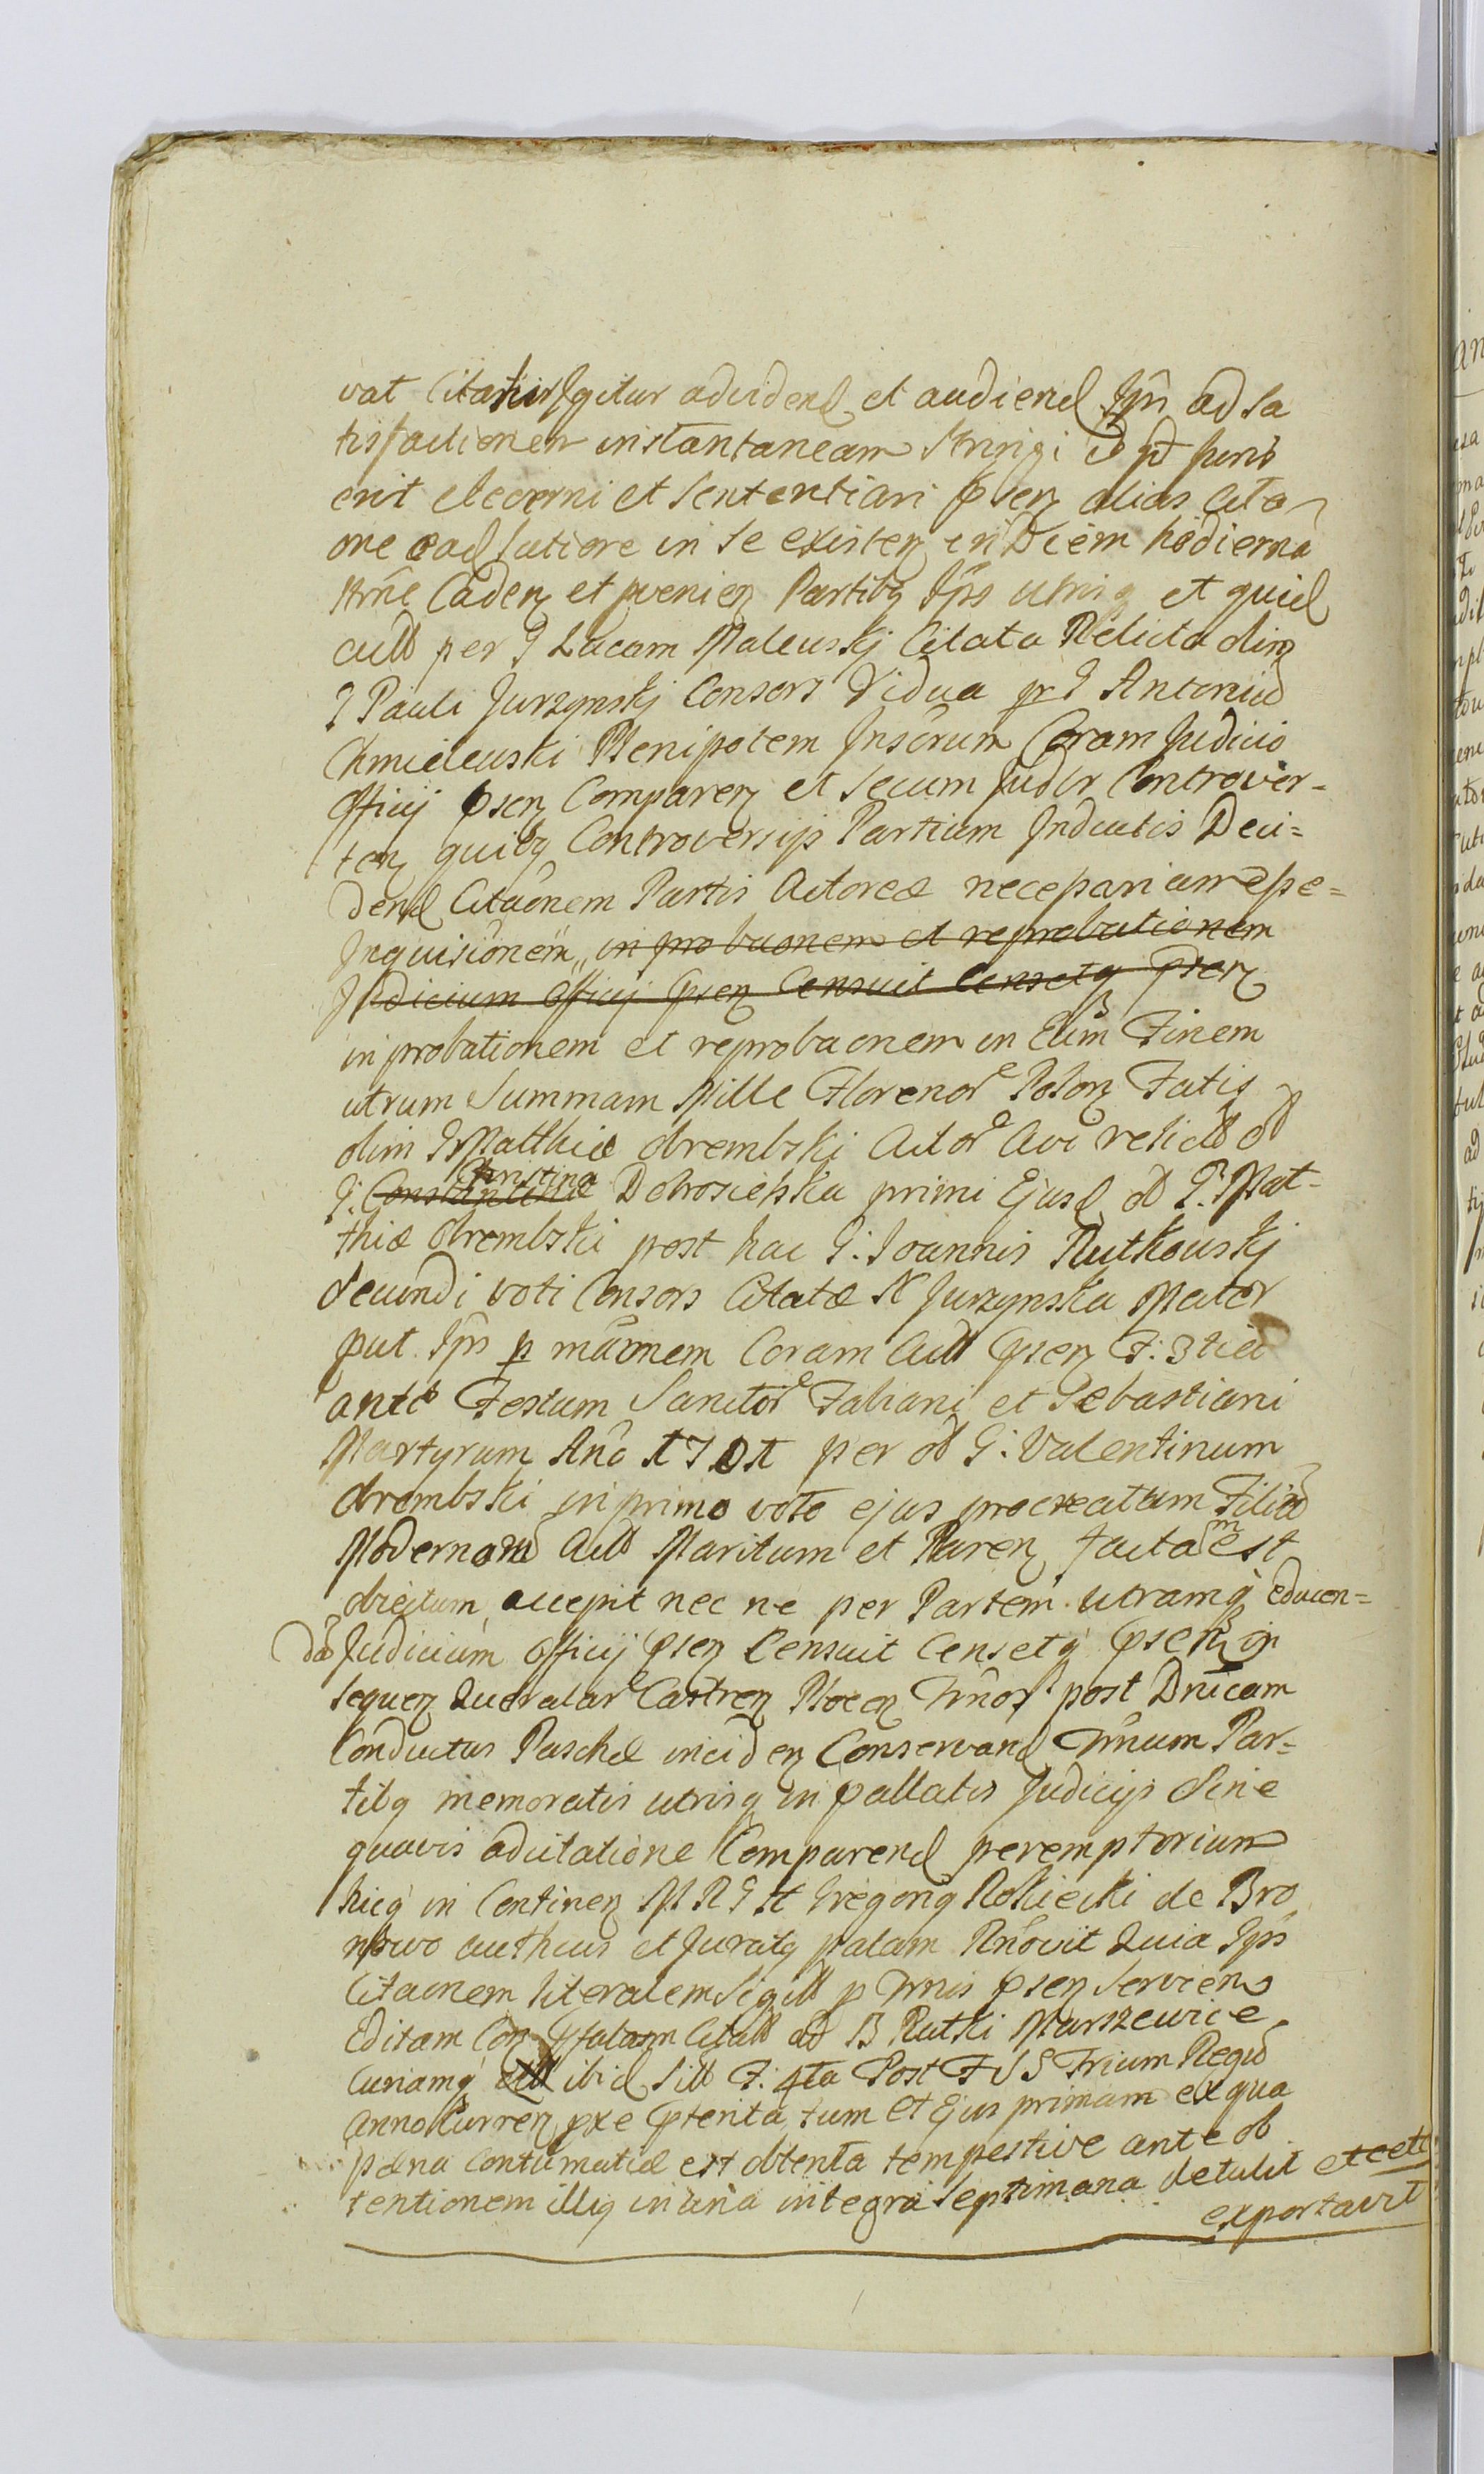 vat Citatur Igitur ad videnđ et audienđ Ipm ad sa
tisfactionem instantaneam stringi id qđ Juris
erit decerni et sententiari pſen alias Cita
one ead latiore in se existen in Diem hodierna
trne Caden et pvenien Partibg Ips utrisq et quid
actt per G Lucam Maleuskj Citata Relicta olim
G Pauli Jurzynskj Consors Vidua pr G Antoniu
Chmieleuski Plenipotem Inscrum Coram Judicio
Officij pſen Comparen et secum Judtr Controver-
ten quibg Controversijs Partium Inductis Deci=
denđ Citaonem Partis Actoreæ necessariam esse=
Inquisionem in probaonem et reprobationem
Judicium Officij pſen Censuit Censetq pſen
in probationem et reprobaonem in Eum Finem
utrum Summam Mille Floreno Polon Fatis
olim G Matthiæ Obrembski Acto Avi relictt
G: Constantinæ Christina Dobrosielska primi Ejusđ G: Mat-
thiæ Obrembski post hac G: Joannis Rutkouskj
secundi voti Consors Citatæ N Jurzynska Mater
put Ips p maonem Coram Actt pſen F: 3tia
ante Festum Sancto Fabiani et Sebastiani
Martyrum Ano 1701 per G: Valentinum
Obrembski in primo voto ejus procreatum Filiu
Modernam Actt Maritum et Paren facta est
obiectum accepit nec ne per Partem utramq educen=
da Judicium Officij pſen Censuit Censetq pſen in
sequen Querelar Castren Plocen trnos post Dnicam
Conductus Paschæ inciden Conservanđ trnum Par=
tibg memoratis utrisq in pallatis Judicijs Sine
quavis adcitatione Comparenđ peremptorium
hicq in Continen M R G Gregorig Rokiecki de Bro
authcus et Juratg palam Rnovit Quia Ips
Citaonem literalem Sigill p trnis pſen servien
Editam Con pfatam Citatt ad B Rutki Marszewice
Curiamq ibiđ sitt F: 4ta Post F S S Trium Regu
Anno Curren pxe pterita tum et Ejus primam ex qua
pæna contumatiæ est obtenta tempestive ante ob
tentionem illig in una integra Septimana detulit et
exportavit